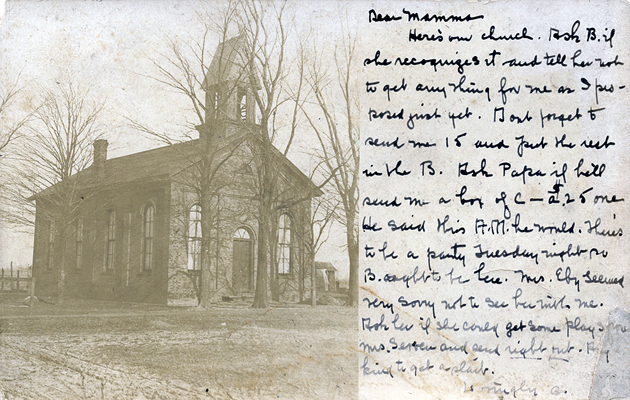 Dear Mamma
Here's our church. Ask B. if
she recognizes it and tell her not
to get anything for me as I pro-
posed just yet. Dont forget to
send me 15 and put the rest
in the B. Ask Papa if he'll
send me a box of C — a $.25 one
He said this A.M. he would. There's
to be a party Tuesday night so
B. ought to be here. Mrs. Eby seemed
very sorry not to see her with me.
Ask her if she could get some plays
Mrs. and send right out.
king to get a start.